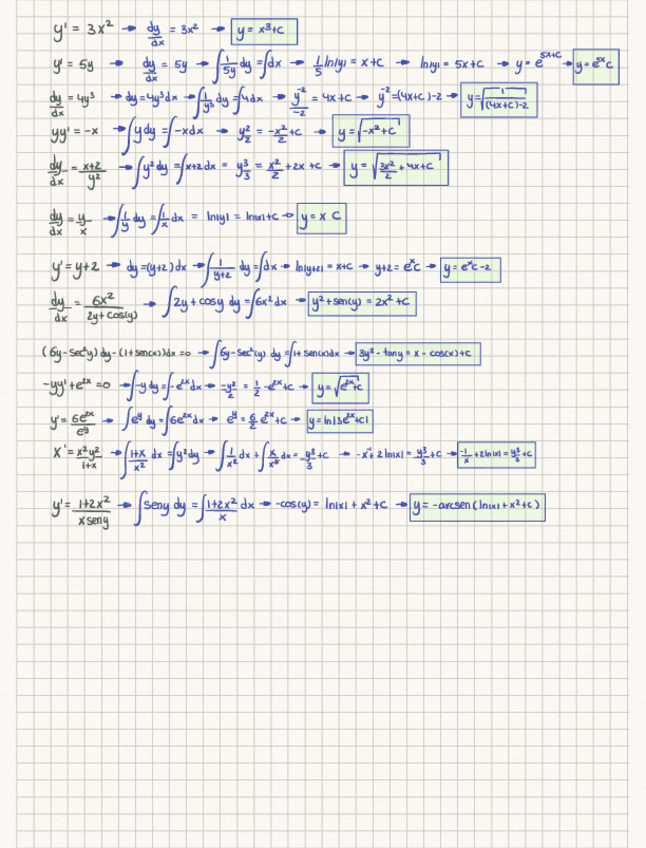 y' = 3x² → dy/dx = 3x² → y = x³+c
y' = 5y → dy/dx = 5y → ∫1/5y dy = ∫dx → 1/5 ln|y| = x+c → ln|y| = 5x+c → y = e^5x+c → y = e^5x c
dy/dx = 4y³ → dy = 4y³dx → ∫1/y³ dy = ∫4dx → y^-2/-2 = 4x+c → y^-2 = (4x+c)-2 → y = √1/(4x+c)-2
yy' = -x → ∫ydy = ∫-xdx → y²/2 = -x²/2 + c → y = √-x²+c
dy/dx = x+2/y² → ∫y²dy = ∫x+2dx = y³/3 = x²/2 + 2x + c → y = √3x²/2 + 4x+c
dy/dx = y/x → ∫1/y dy = ∫1/x dx = ln|y| = ln|x|+c → y = x c
y' = y+2 → dy = (y+2)dx → ∫1/y+2 dy = ∫dx → ln|y+2| = x+c → y+2 = e^x c → y = e^x c-2
dy/dx = 6x²/2y+cos(y) → ∫2y+cosy dy = ∫6x²dx → y²+sen(y) = 2x²+c
(6y-sec²y)dy-(1+sen(x))dx=0 → ∫6y-sec²(y) dy = ∫1+sen(x)dx → 3y²-tany = x-cos(x)+c
-yy'+e^2x=0 → ∫-ydy = ∫-e^2xdx → -y²/2 = 1/2-e^2x+c → y = √e^2x+c
y' = 6e^2x/e^y → ∫e^y dy = ∫6e^2xdx → e^y = 6/2 e^2x+c → y = ln|3e^2x+c|
x' = x²y²/1+x → ∫1+x/x² dx = ∫y²dy → ∫1/x² dx + ∫x/x² dx = y³/3+c → -x^-1+2ln|x| = y³/3+c → -1/x+2ln|x| = y³/3+c
y' = 1+2x²/x seny → ∫seny dy = ∫1+2x²/x dx → -cos(y) = ln|x|+x²+c → y = -arcsen(ln|x|+x²+c)